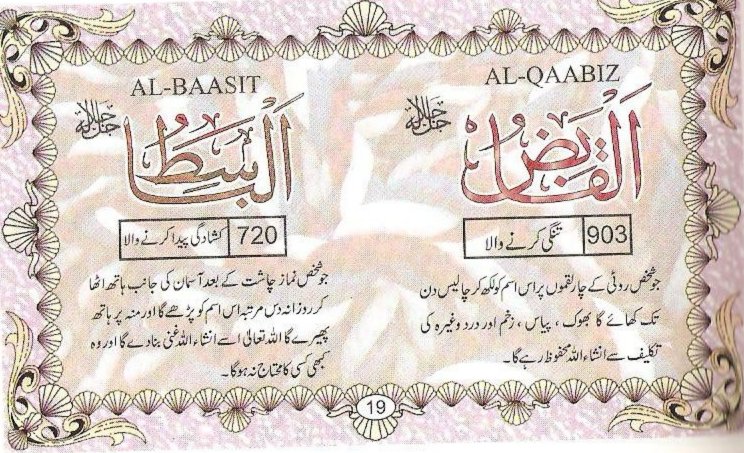 AL-QAABIZ
جل جلالہ
اَلْقَابِضُ
903 تنگی کرنے والا
جو شخص روٹی کے چار لقموں پر اس اسم کو لکھ کر چالیس دن
تک کھائے گا بھوک ، پیاس ، زخم اور درد وغیرہ کی
تکلیف سے انشاء اللہ محفوظ رہے گا۔
AL-BAASIT
جل جلالہ
اَلْبَاسِطُ
720 کشادگی پیدا کرنے والا
جو شخص نماز چاشت کے بعد آسمان کی جانب ہاتھ اٹھا
کر روزانہ دس مرتبہ اس اسم کو پڑھے گا اور منہ پر ہاتھ
پھیرے گا اللہ تعالیٰ اسے انشاء اللہ غنی بنادے گا اور وہ
کبھی کسی کا محتاج نہ ہوگا۔
19